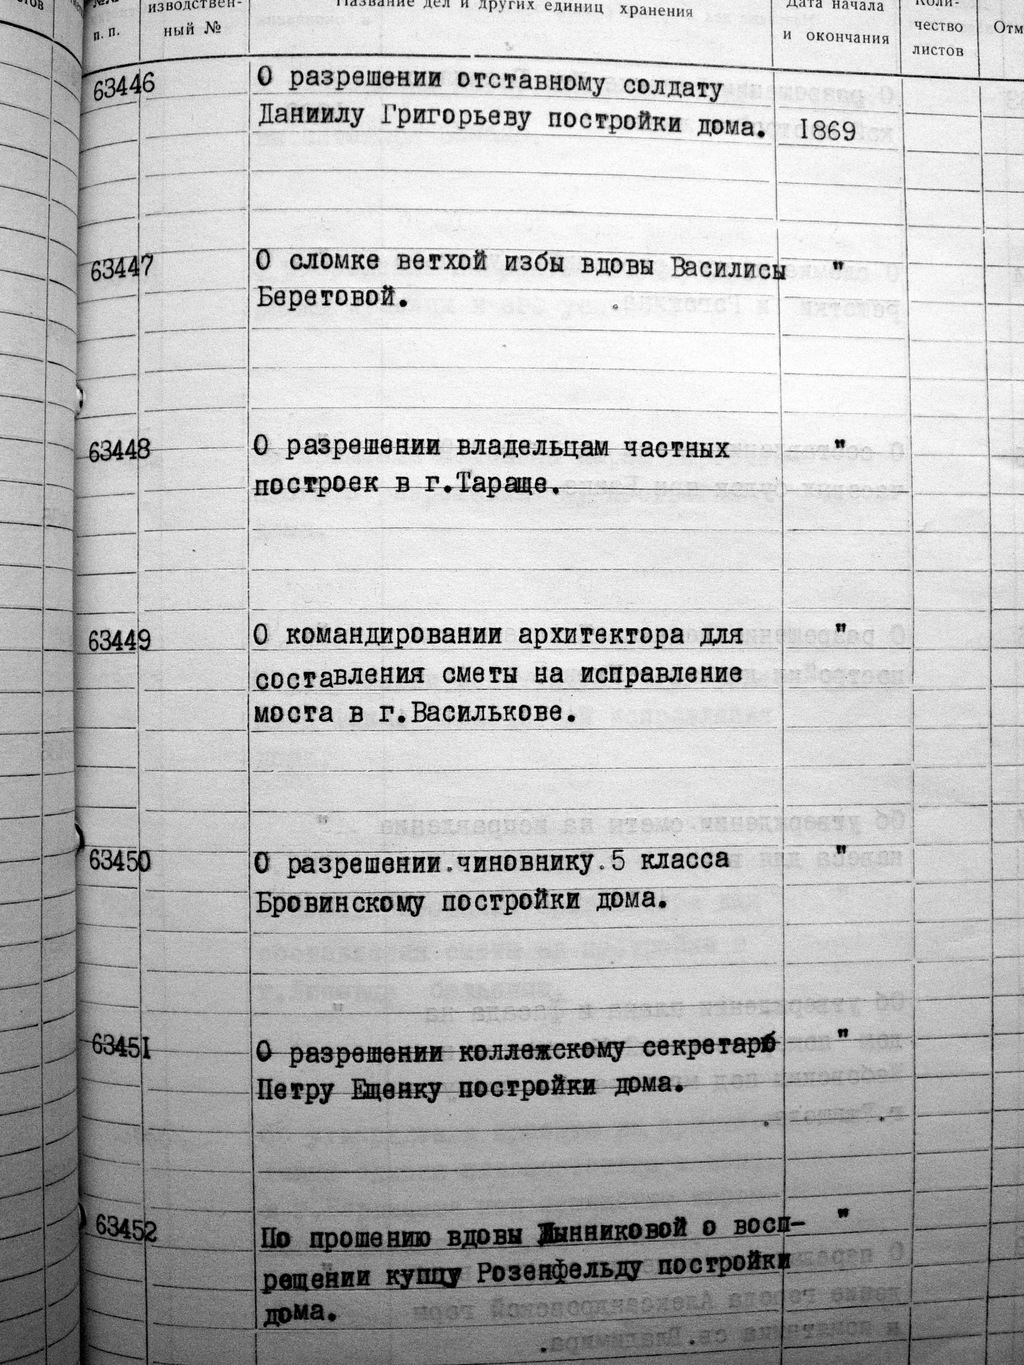 изводствен-
Название дел и других единиц хранения
Дата начала
Коли-
п. п.
ный №
и окончания
чество
листов
Отм
63446
О разрешении отставному солдату
Даниилу Григорьеву постройки дома.
1869
63447
О сломке ветхой избы вдовы Василисы "
Беретовой.
63448
О разрешении владельцам частных "
построек в г.Тараще.
63449
О командировании архитектора для "
составления сметы на исправление
моста в г.Василькове.
63450
О разрешении.чиновнику.5 класса "
Бровинскому постройки дома.
63451
О разрешении коллежскому секретарю "
Петру Ещенку постройки дома.
63452
По прошению вдовы о восп- "
рещении купцу Розенфельду постройки
дома.